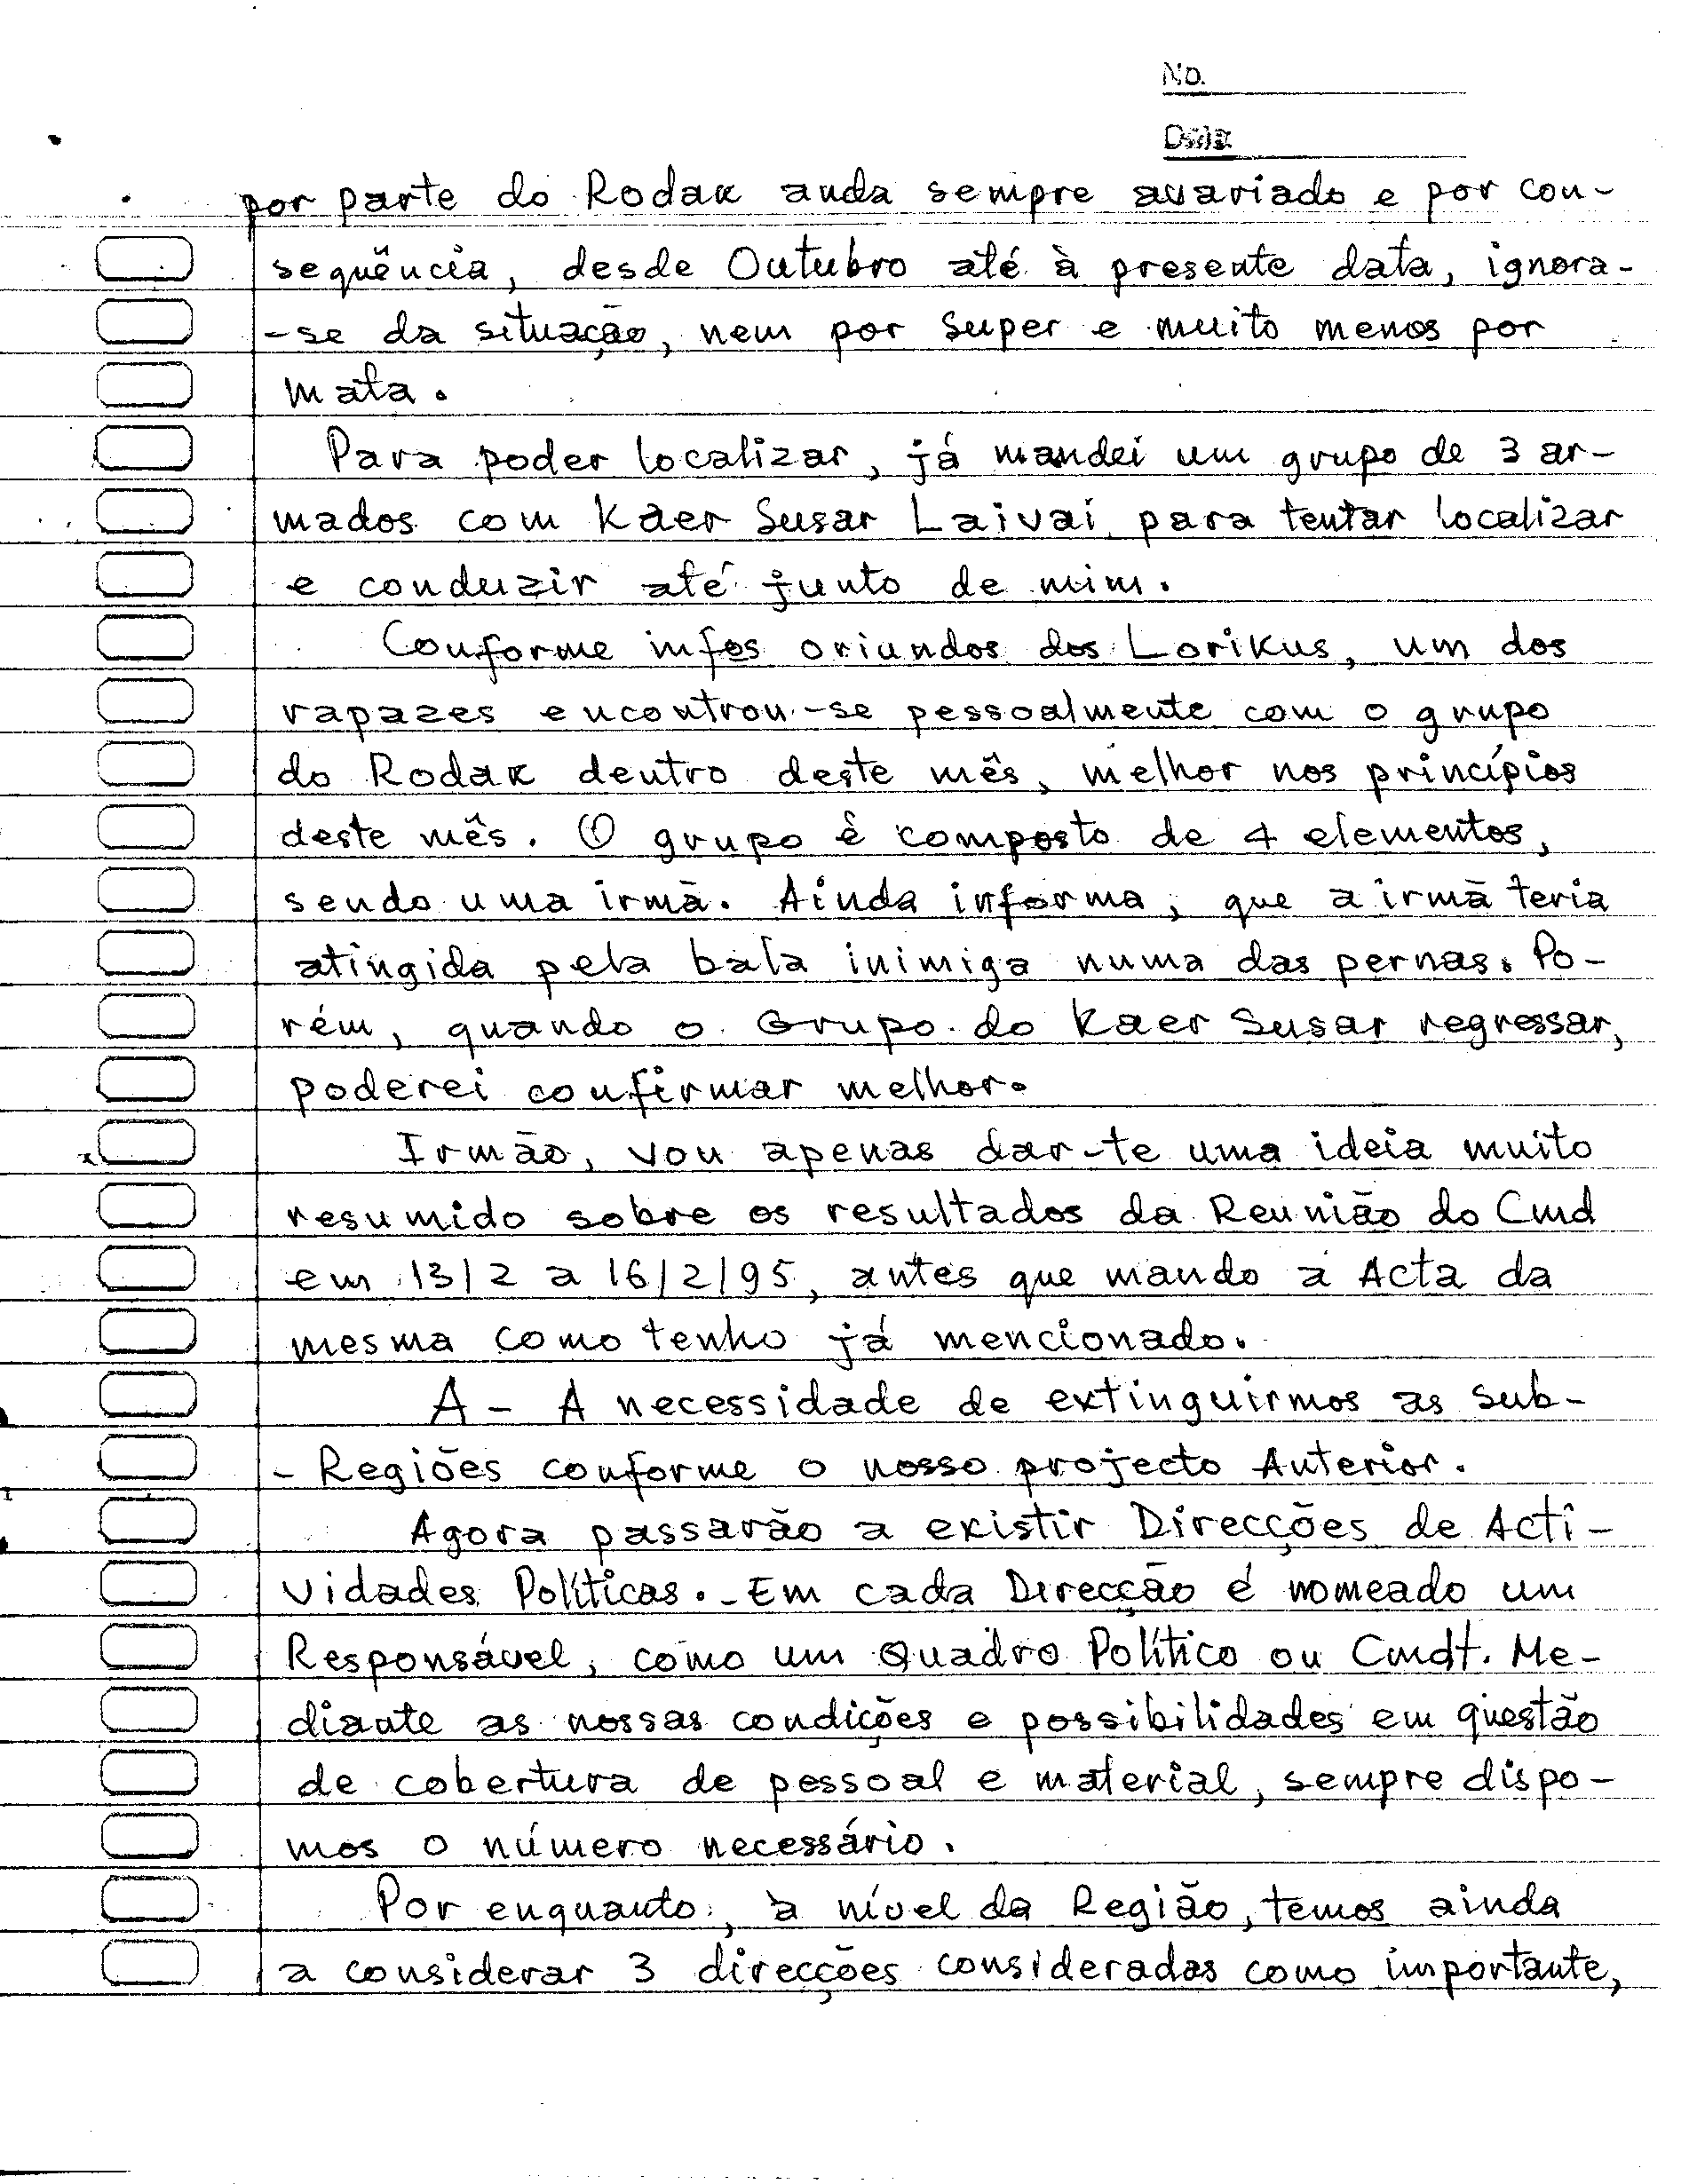 No.
Date
por parte do Rodak anda sempre avariado e por con-
sequência, desde Outubro até à presente data, ignora-
-se da situação, nem por super e muito menos por
mata.
Para poder localizar, já mandei um grupo de 3 ar-
mados com Kaer Susar Laivai para tentar localizar
e conduzir até junto de mim.
Conforme infos oriundos dos Lorikus, um dos
rapazes encontrou-se pessoalmente com o grupo
do Rodak dentro deste mês, melhor nos princípios
deste mês. O grupo è composto de 4 elementos,
sendo uma irmã. Ainda informa, que a irmã teria
atingida pela bala inimiga numa das pernas. Po-
rém, quando o Grupo do Kaer Susar regressar,
poderei confirmar melhor.
Irmão, vou apenas dar-te uma ideia muito
resumido sobre os resultados da Reunião do Cmd
em 13/2 a 16/2/95, antes que mando a Acta da
mesma como tenho já mencionado.
A - A necessidade de extinguirmos as sub-
- Regiões conforme o nosso projecto Anterior.
Agora passarão a existir Direcções de Acti-
vidades Políticas. - Em cada Direcção é nomeado um
Responsável, como um Quadro Político ou Cmdt. Me-
diante as nossas condições e possibilidades em questão
de cobertura de pessoal e material, sempre dispo-
mos o número necessário.
Por enquanto, à nível da Região, temos ainda
a considerar 3 direcções consideradas como importante,